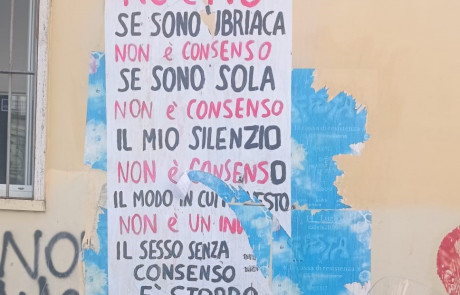 NO È NO
SE SONO UBRIACA
NON È CONSENSO
SE SONO SOLA
NON È CONSENSO
IL MIO SILENZIO
NON È CONSENSO
IL MODO IN CUI
NON È UN
IL SESSO SENZA
CONSENSO
È STUPRO
NON